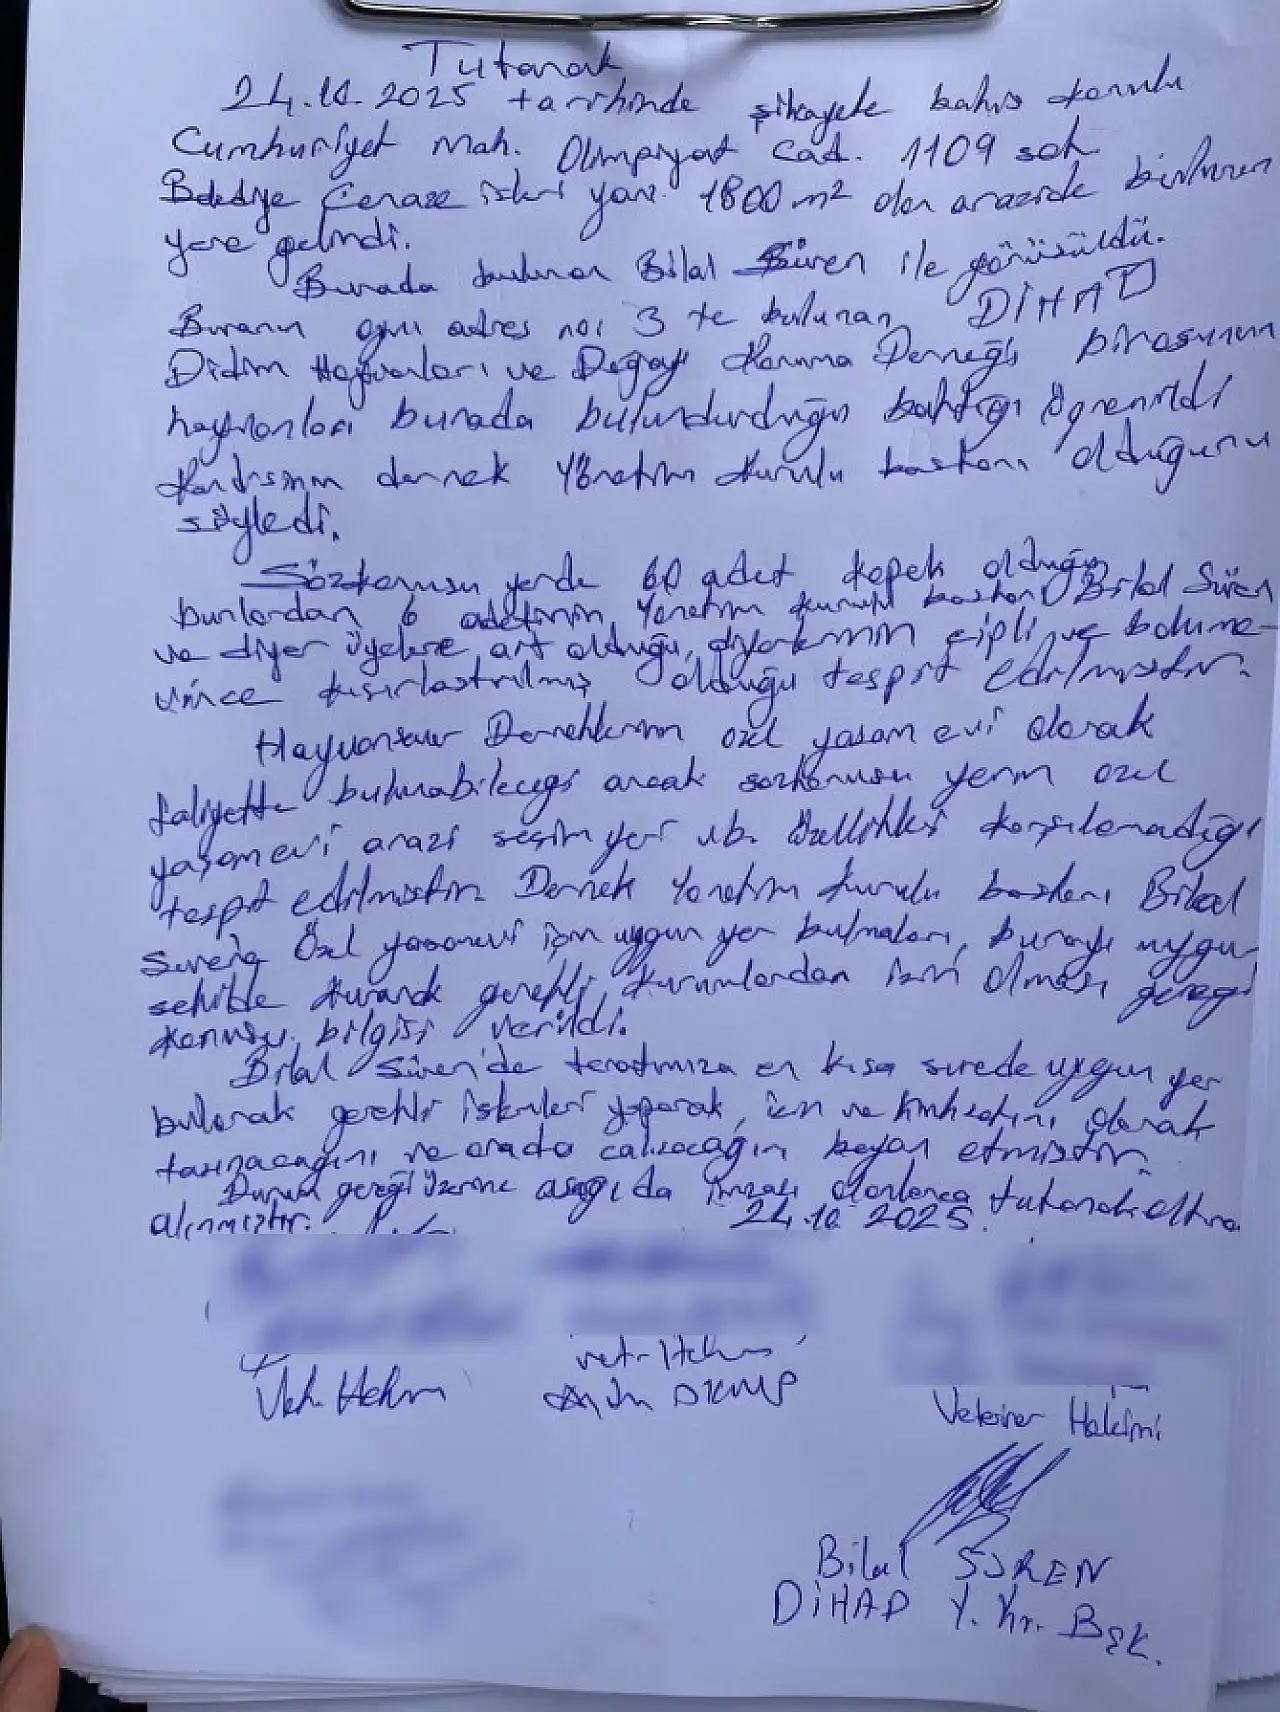 Tutanak
24.10.2025 tarihinde şikayete bahis konulu
Cumhuriyet Mah. Olimpiyat Cad. 1109 sok
Belediye Cenaze işleri yanı 1800 m² olan arazide bulunan
yere gelindi.
Burada bulunan Bilal Süren ile görüşüldü.
Buranın aynı adres no: 3 te bulunan DİHAD
Didim Hayvanları ve Doğayı Koruma Derneği binasının
hayvanları burada bulundurduğu baktığı öğrenildi
Kendisinin dernek Yönetim kurulu başkanı olduğunu
söyledi.
Sözkonusu yerde 60 adet köpek olduğu
bunlardan 6 adetinin Yönetim kurulu başkanı Bilal Süren
ve diğer üyelere ait olduğu, diğerlerinin çipli ve
kısırlaştırılmış olduğu tespit edilmiştir.
Hayvansever Derneklerinin özel yaşam evi olarak
faliyette bulunabileceği ancak sözkonusu yerin özel
yaşam evi arazi seçim yeri vb. özellikleri karşılamadığı
tespit edilmiştir. Dernek Yönetim kurulu başkanı Bilal
Süren'e Özel yaşamevi için uygun yer bulmaları, burayı uygun
şekilde kurarak gerekli kurumlardan izin alması gereği
konusu bilgisi verildi.
Bilal Süren'de tarafımıza en kısa sürede uygun yer
bularak gerekli işlemleri yaparak, izin ve olarak
taşınacağını ve orada çalışacağını beyan etmiştir.
Durum gereği üzerine aşağıda imzası olanlarca tutanak altına
alınmıştır. 24.10.2025.
Vet. Hekim
vet. Hekim
DKMP
Veteriner Hekimi
Bilal SÜREN
DİHAD Y. Kr. Bşk.